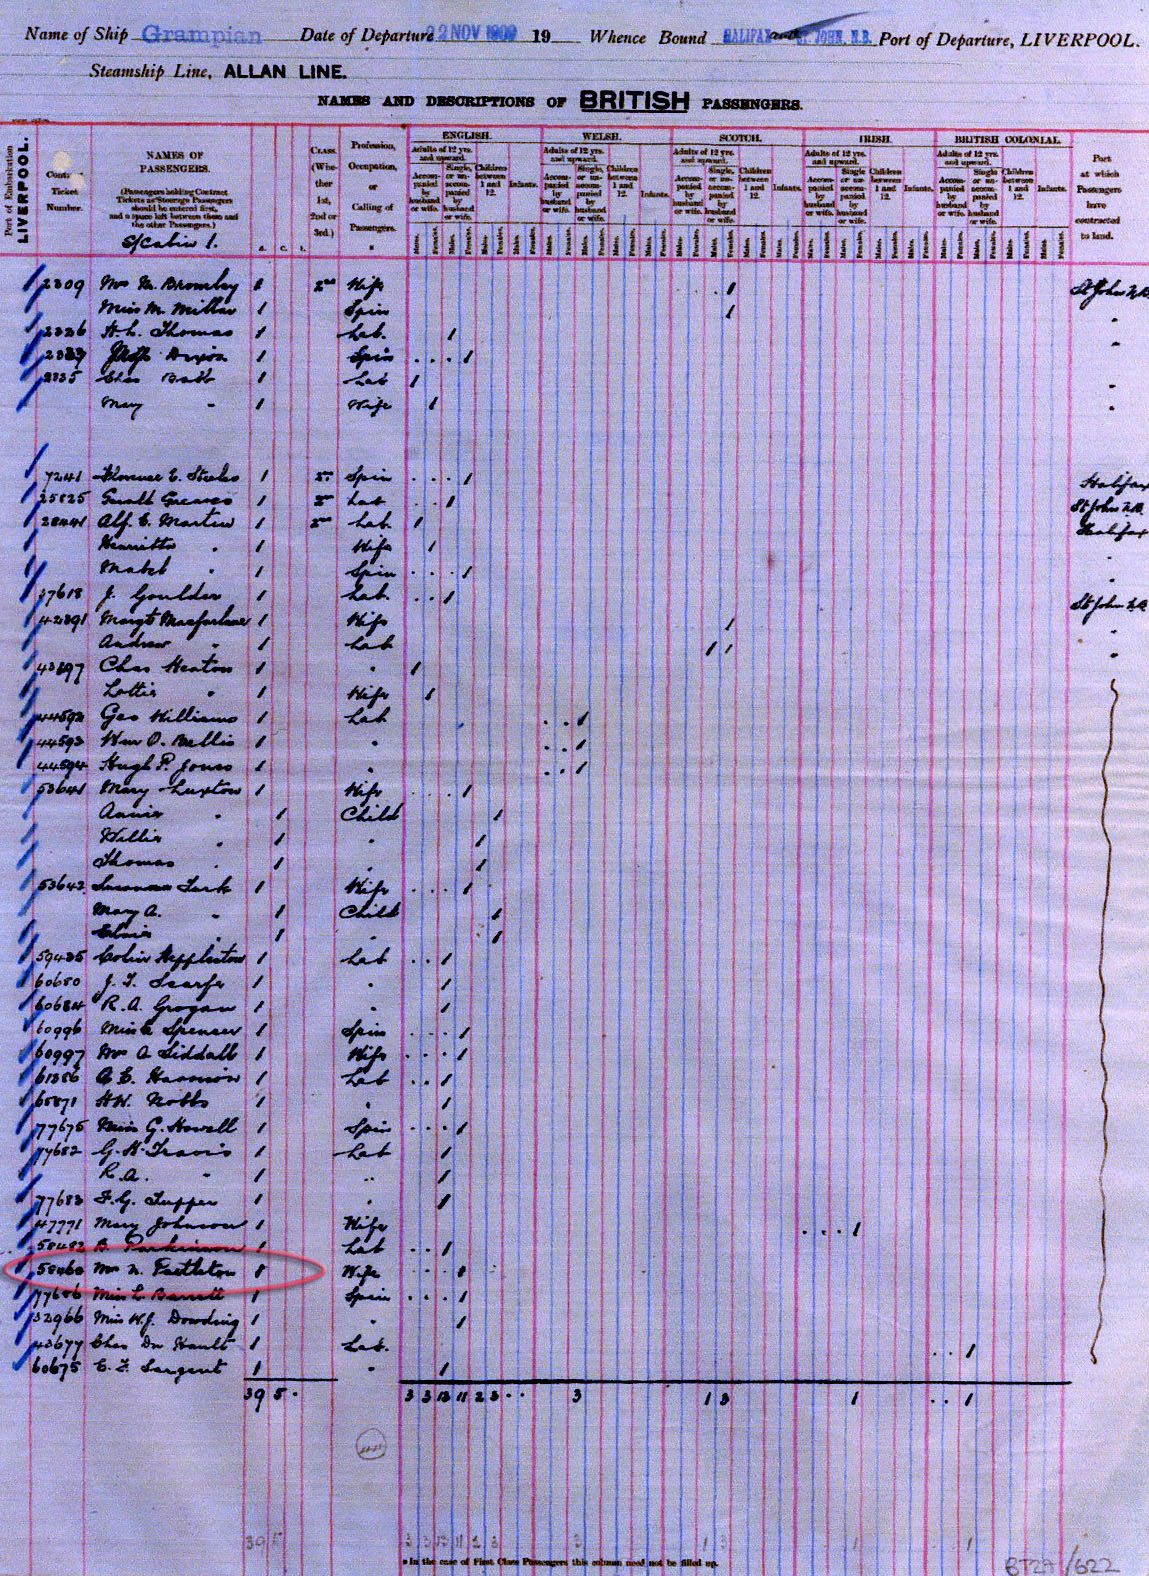 Name of Ship Grampian Date of Departure 22 NOV 1909 19 Whence Bound HALIFAX and ST. JOHN, N.B. Port of Departure, LIVERPOOL.
Steamship Line, ALLAN LINE.
NAMES AND DESCRIPTIONS OF BRITISH PASSENGERS.
Port of Embarkation LIVERPOOL.
Contract Ticket Number.
NAMES OF PASSENGERS.
(Passengers holding Contract Tickets as Steerage Passengers should be entered first, and a space left between them and the other Passengers.)
S/Cabin 1.
A. C. I.
CLASS. (Whether 1st, 2nd or 3rd.)
Profession, Occupation, or Calling of Passengers.
ENGLISH. WELSH. SCOTCH. IRISH. BRITISH COLONIAL.
Adults of 12 yrs. and upward. Accompanied by husband or wife. Single, or unaccompanied by husband or wife. Children between 1 and 12. Infants.
Males. Females.
Port at which Passengers have contracted to land.
2309 Mrs M. Bromley 1 2nd Wife 1 St John N.B.
Miss M. Millar 1 Spin 1 "
2326 H. L. Thomas 1 Lab. 1 "
Dixon 1 Spin 1
2335 Chas Batt 1 Lab 1 "
Mary " 1 Wife 1 "
7241 Florence E. Steeles 1 2nd Spin 1 Halifax
25825 Greaves 1 2nd Lab 1 St John N.B.
28441 Alf. E. Martin 1 2nd Lab 1 Halifax
Henrietta " 1 Wife 1 "
Mabel " 1 Spin 1 "
37618 J. Goulder 1 Lab 1 St John N.B.
42891 Margt Macfarlane 1 Wife 1 "
Andrew " 1 Lab 1 1 "
43897 Chas Heaton 1 " 1
Lottie " 1 Wife 1
44592 Geo Williams 1 Lab 1
44593 Wm O. Bellis 1 " 1
44594 Hugh P. Jones 1 " 1
53641 Mary Luxton 1 Wife 1
Annie " 1 Child 1
Willie " 1 " 1
Thomas " 1 " 1
53642 Susannah Turk 1 Wife 1
Mary A. " 1 Child 1
Elsie " 1 " 1
59435 Colin Heppleston 1 Lab 1
60680 J. T. Scarfe 1 " 1
60684 R. A. Grogan 1 " 1
60996 Miss Spencer 1 Spin 1
60997 Mrs A Siddall 1 Wife 1
61386 A. E. Harrison 1 Lab 1
65871 H W. Nobbs 1 " 1
77675 Miss G. Howell 1 Spin 1
77682 G. H. Travis 1 Lab 1
" R. A. " 1 " 1
77683 F. G. Tupper 1 " 1
47771 Mary Johnson 1 Wife 1
58482 B. Parkinson 1 Lab 1
58460 Mrs N. Fettleton 1 Wife 1
77686 Miss L. Barrett 1 Spin 1
32966 Miss W. J. Dowding 1 " 1
43677 Chas Du Hault 1 Lab. 1
60675 E. F. Sargent 1 " 1
39 5 3 3 13 11 2 3 3 1 3 1 1
39 5 3 3 13 11 2 3 3 1 3 1 1
In the case of First Class Passengers this column need not be filled up.
BT27/622